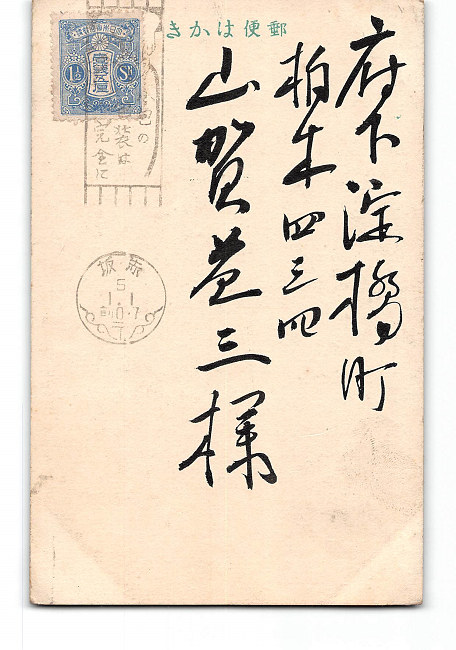 郵便はかき
府下淀橋町
柏木四三四
山賀益三様
壹錢五厘
1½ Sn
包の
装は
完全に
赤坂
5
1.1
前0-7